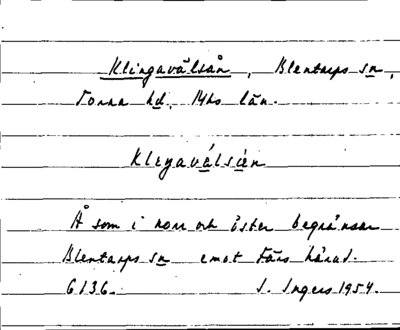 Klingavälsån, Blentarps sn,
Torna hd, Mhs län.
Klegaválsån
Å som i norr och öster begränsar
Blentarps sn emot Färs härad.
6136. I. Ingers 1954.